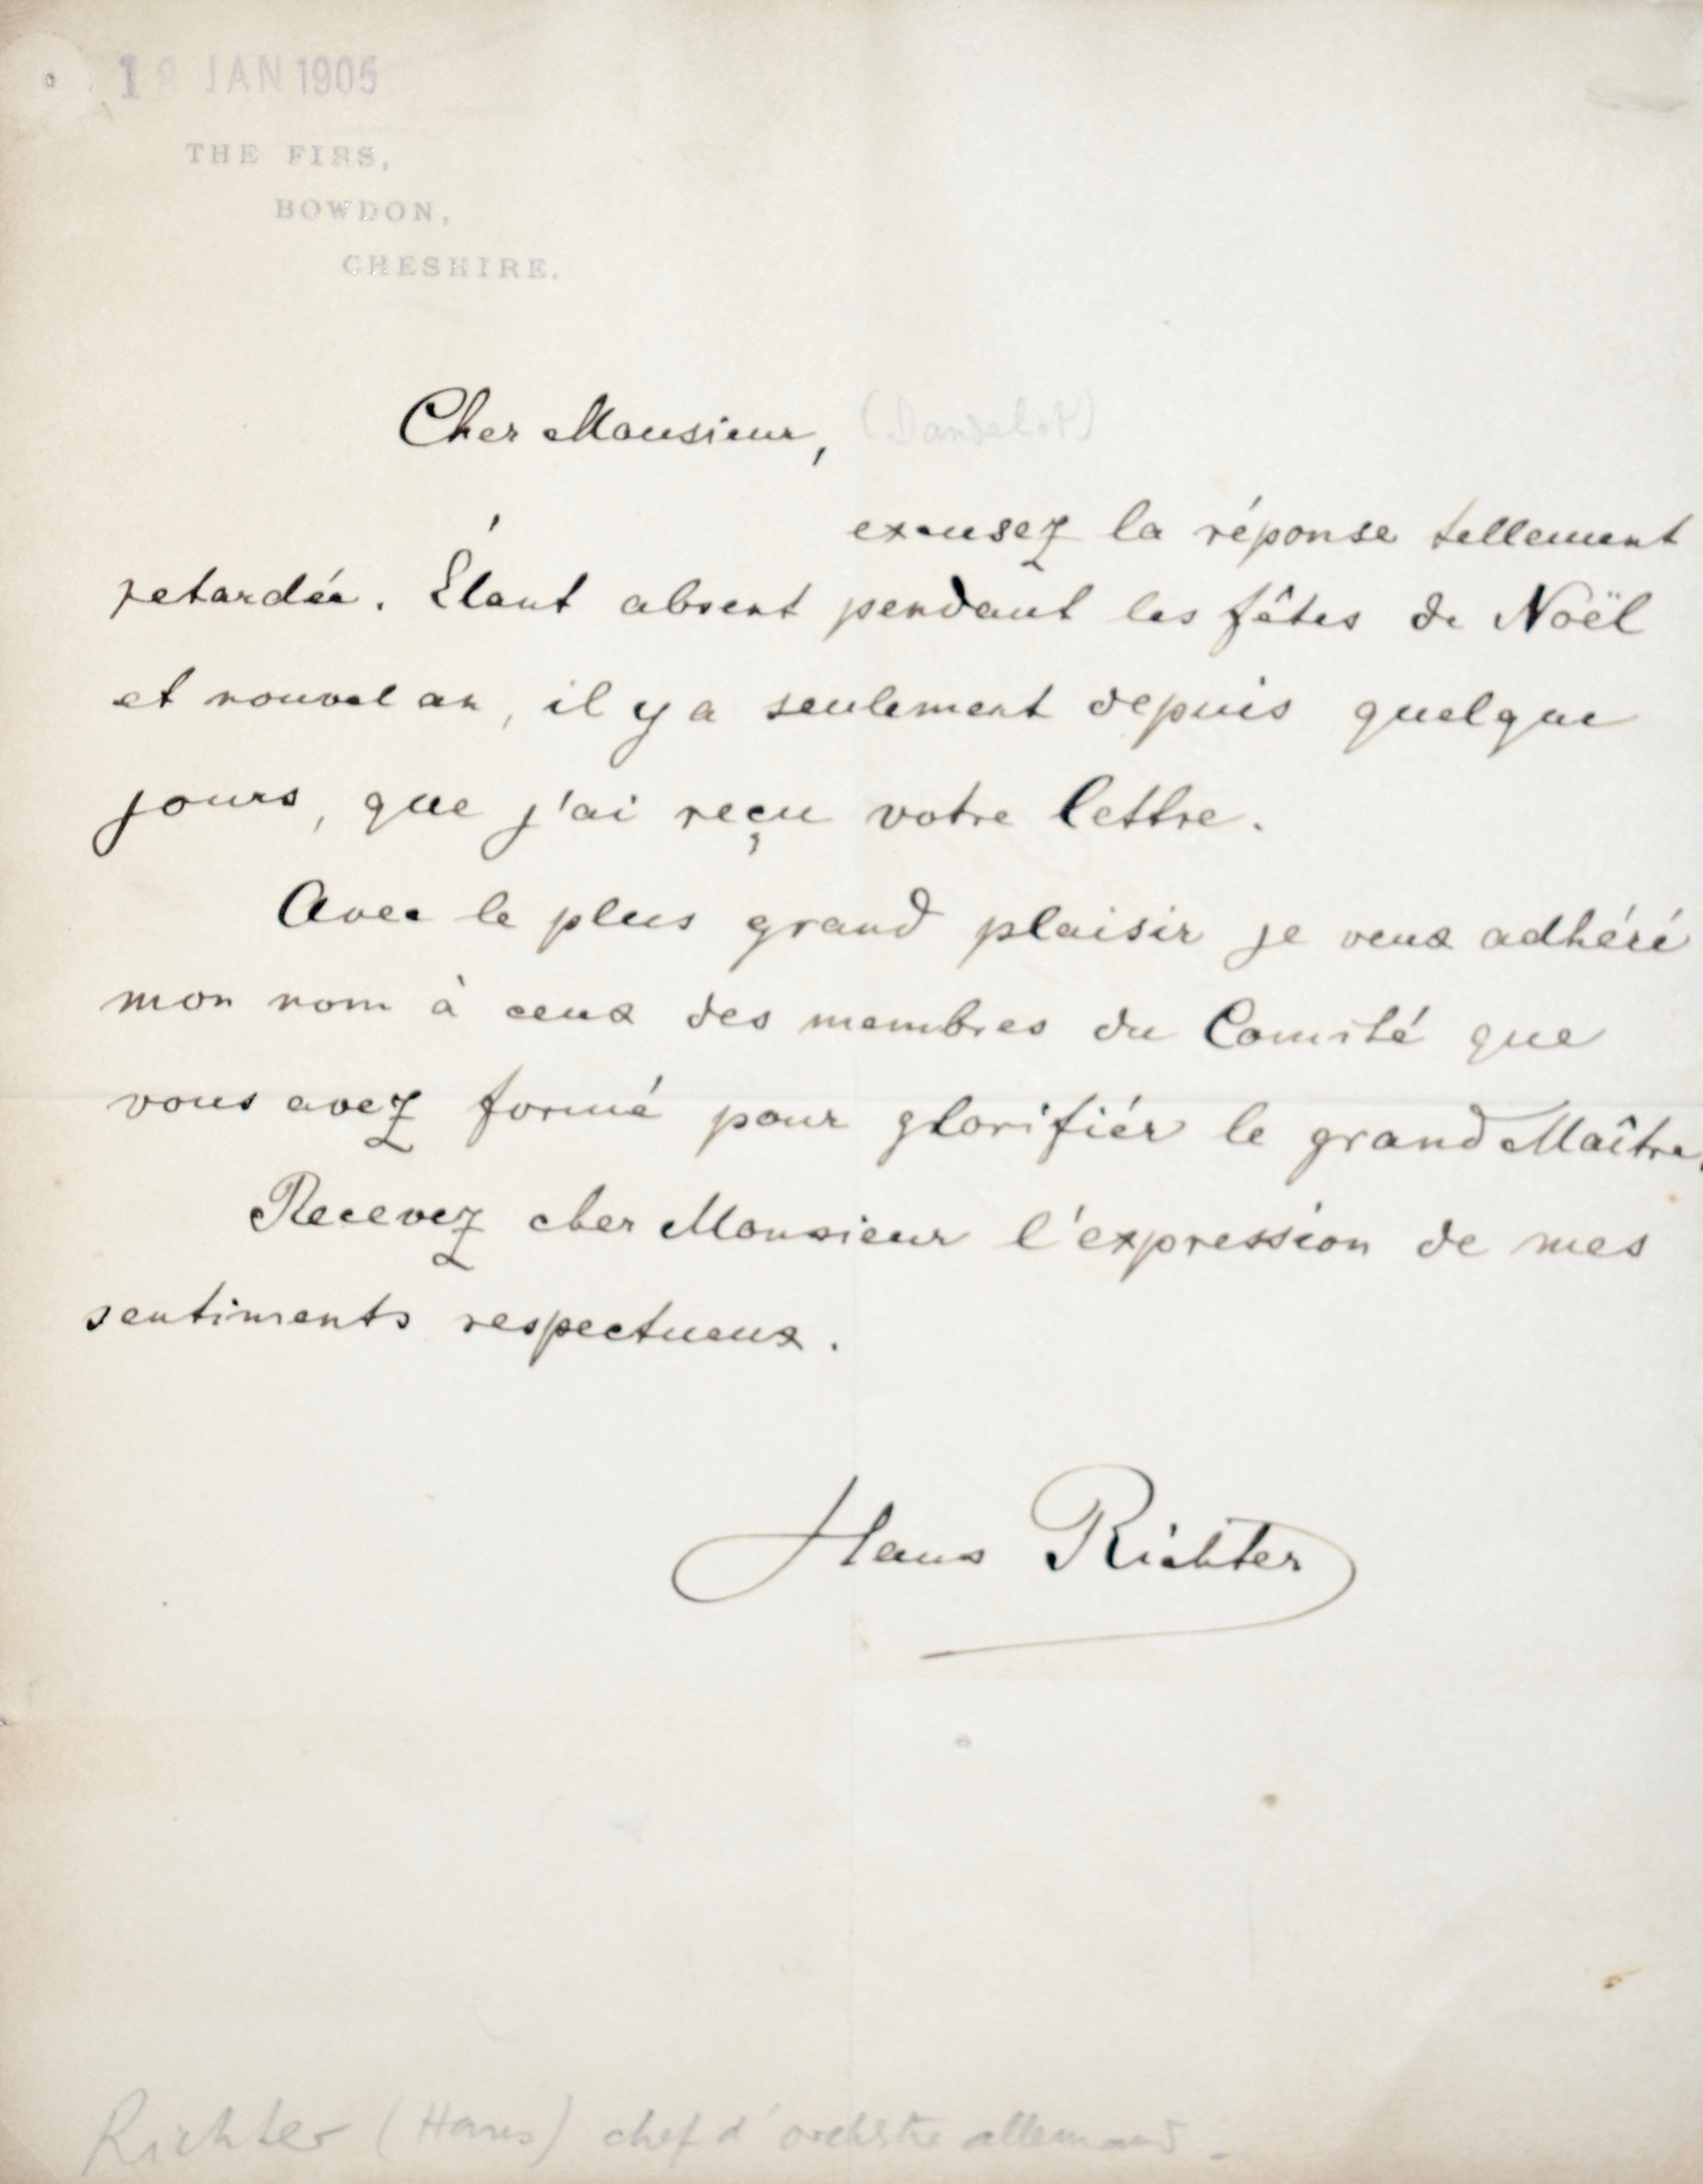 18 JAN 1905
THE FIRS,
BOWDON,
CHESHIRE.
Cher Monsieur, (Dandelot)
excusez la réponse tellement
retardée. Étant absent pendant les fêtes de Noël
et nouvel an, il y a seulement depuis quelque
jours, que j'ai reçu votre lettre.
Avec le plus grand plaisir je veux adhéré
mon nom à ceux des membres du Comité que
vous avez formé pour glorifiér le grand Maître.
Recevez cher Monsieur l'expression de mes
sentiments respectueux.
Hans Richter
Richter (Hans) chef d'orchestre allemand.